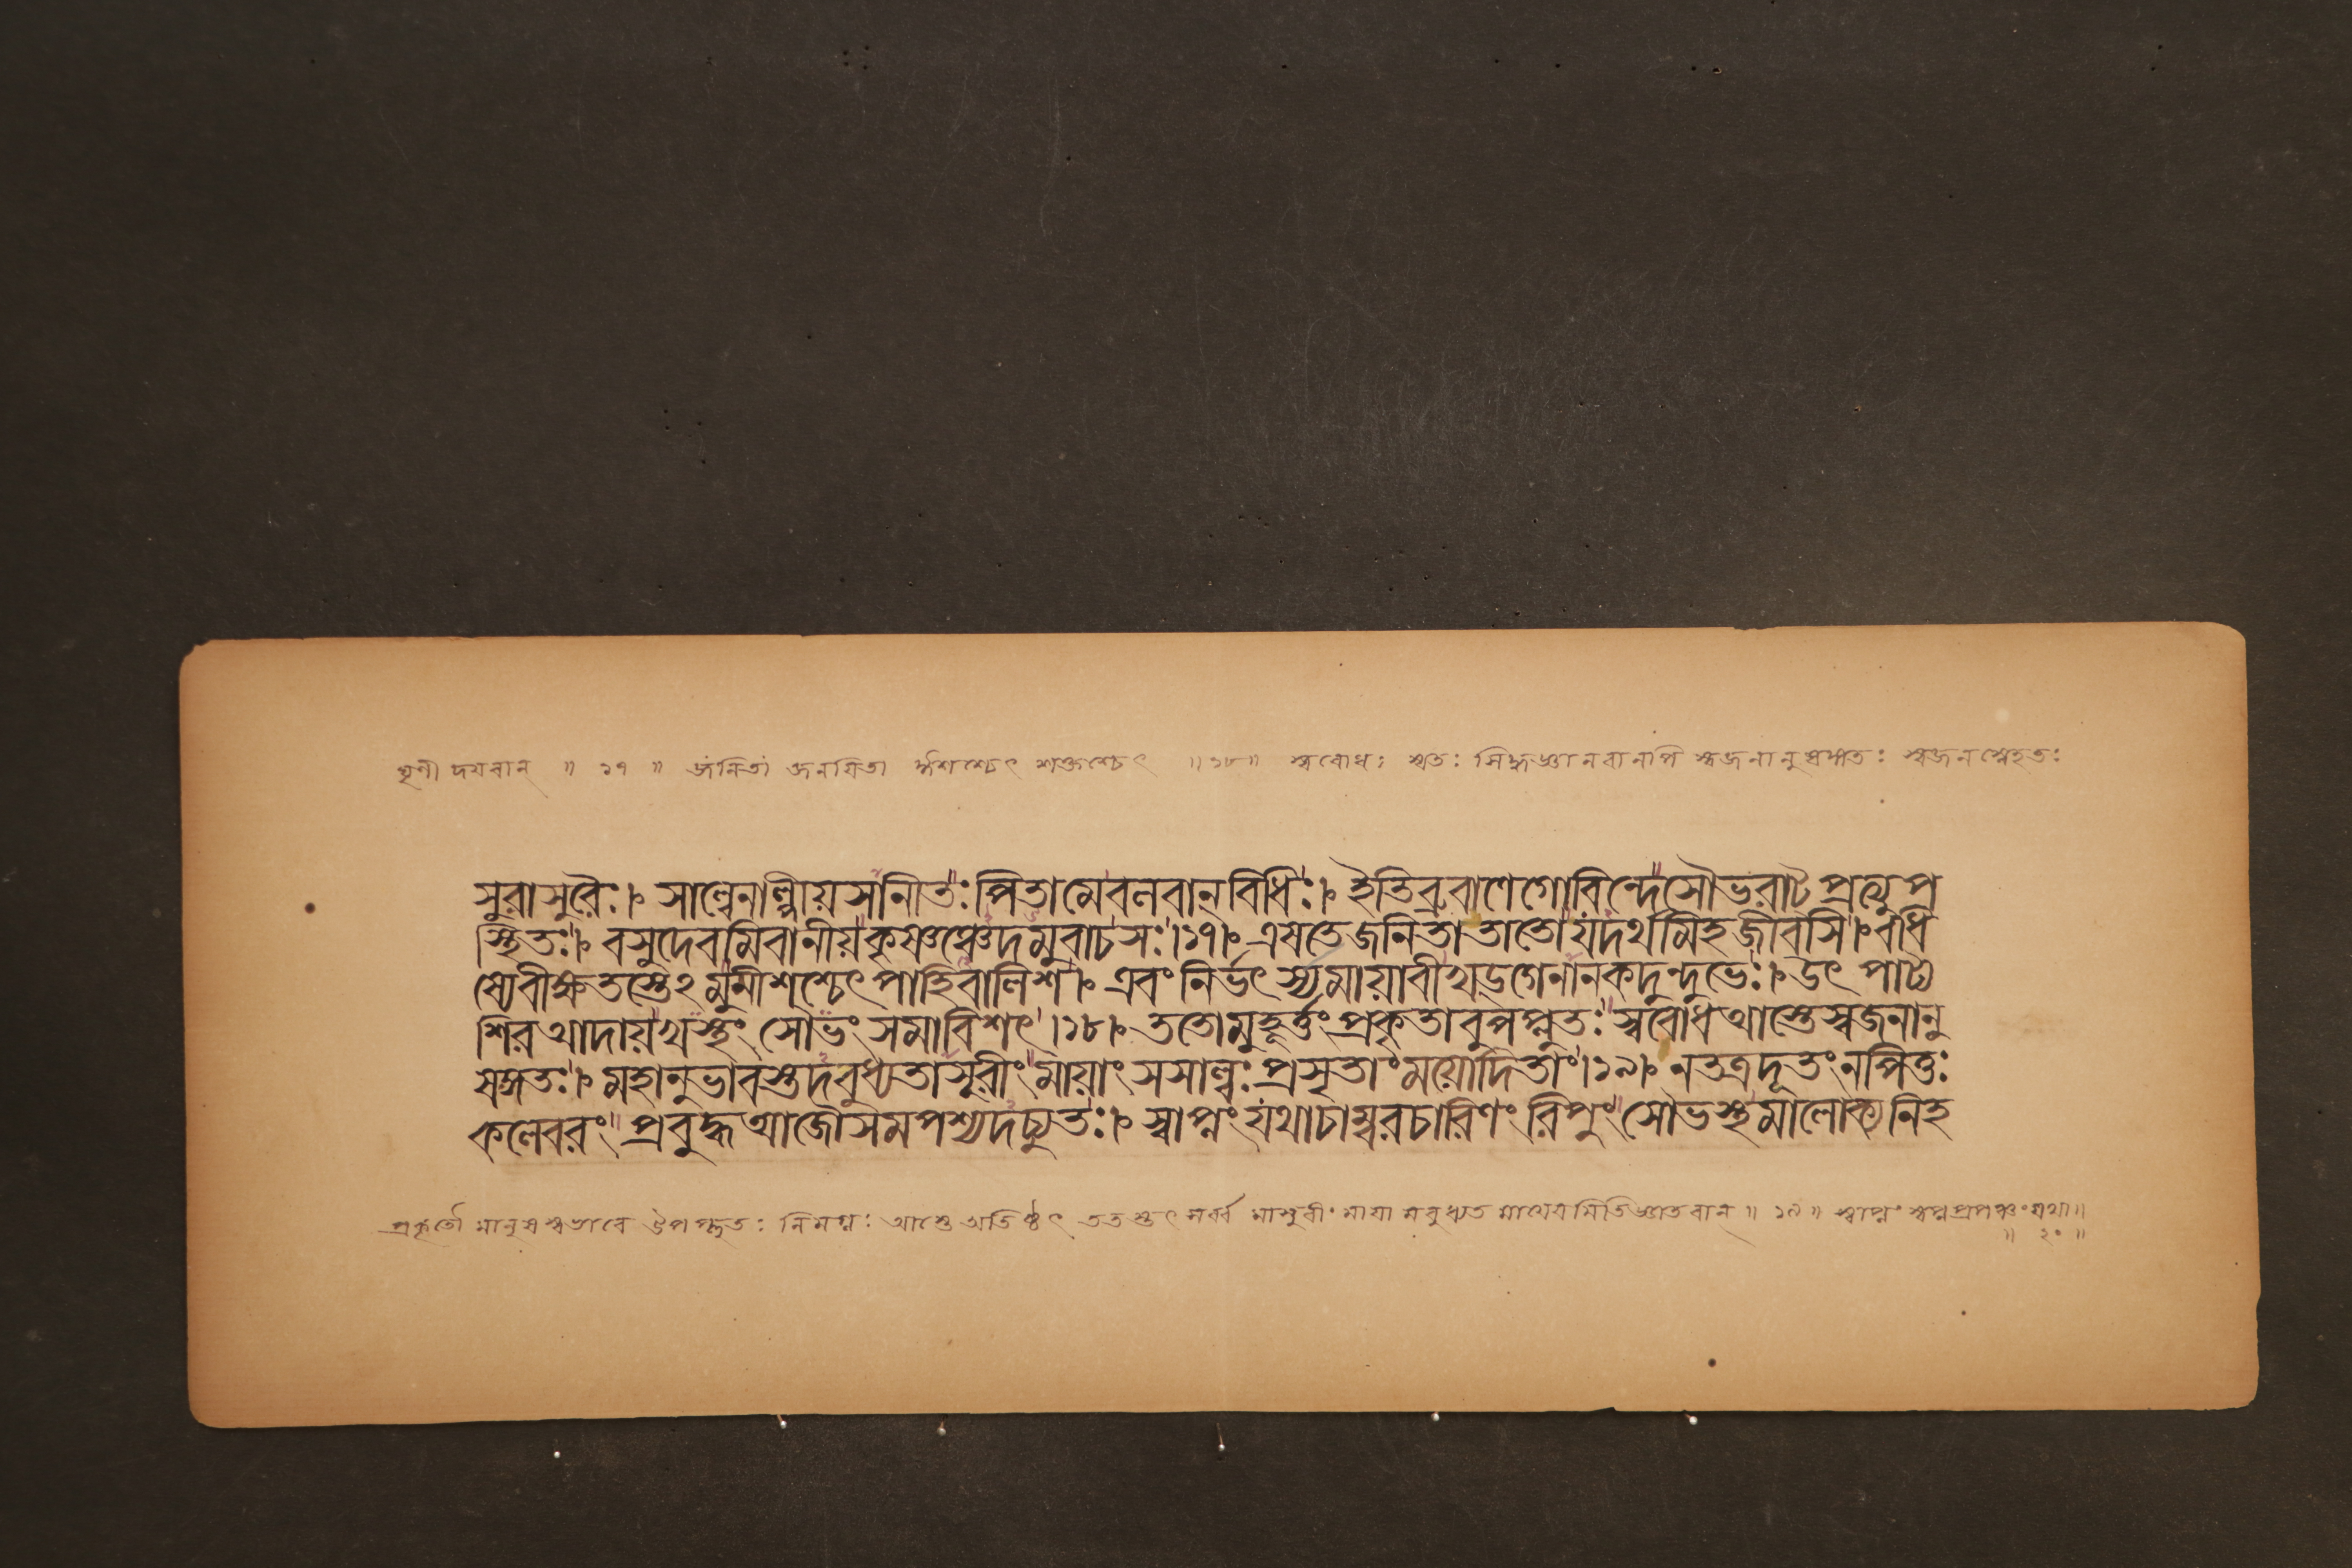 তূর্ণী দয়বান্ ॥ ১৭ ॥ জনিতা জনয়িতা ঈশশ্চেৎ শক্তশ্চেৎ ॥ ১৮ ॥ স্ববোধঃ স্বতঃ সিদ্ধজ্ঞানবানপি স্বজনানুষঙ্গতঃ স্বজনস্নেহতঃ
সুরাসুরৈঃ। সাল্বেনাল্পীয়সানীতঃ পিতামেবলবান্ বিধিঃ। ইতিব্রুবাণেগোবিন্দেসৌভরাট্ প্রত্যুপ
স্থিতঃ। বসুদেবমিবানীয়কৃষ্ণঞ্চেদমুবাচসঃ।১৭। এষতেজনিতাতাতোযদর্থমিহজীবসি। বধি
ষ্যেবীক্ষতস্তেঽমুমীশশ্চেৎ পাহিবালিশ। এবং নির্ভৎর্স্যমায়াবীখড়্গেনানকদুন্দুভেঃ। উৎ পাট্য
শির আদায়খস্থং সৌভং সমাবিশৎ।১৮। ততোমুহূর্ত্তং প্রকৃতাবুপপ্লুতঃ স্ববোধআস্তেস্বজনানু
ষঙ্গতঃ। মহানুভাবস্তদবুধ্যতাসুরীং মায়াং সসাল্বঃপ্রসৃতাং ময়োদিতাং।১৯। নতত্রদূতং নপিতুঃ
কলেবরং প্রবুদ্ধ আজৌসমপশ্যদচ্যুতঃ। স্বাপ্নং যথাচাম্বরচারিণং রিপুং সৌভস্থমালোক্য নিহ
প্রকৃতৌ মানুষস্বভাবে উপপ্লুতঃ নিমগ্নঃ আস্তে অতিষ্ঠৎ ততস্তৎ সর্ব্বং মাসুরীং মায়া মবুধ্যত মায়েবমিতিজ্ঞাতবান্ ॥ ১৯ ॥ স্বাপ্নং স্বপ্নপ্রপঞ্চং যথা॥
॥ ২০ ॥